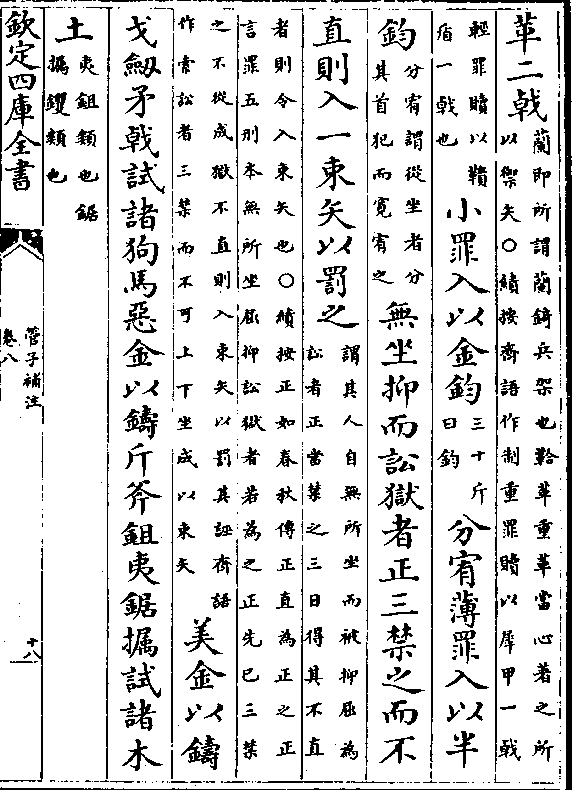 革二戟蘭即所謂蘭錡兵架也鞈革重革當心著之所
以禦矢○績按齊語作制重罪贖以犀甲一戟
輕罪贖以鞼
盾一戟也小罪入以金鈞三十斤
曰鈞分宥薄罪入以半
鈞分宥謂從坐者分
其首犯而寛宥之無坐抑而訟獄者正三禁之而不
直則入一束矢以罰之謂其人自無所坐而被抑屈為
訟者正當禁之三日得其不直
者則令入束矢也○績按正如春秋傳正直為正之正
言罪五刑本無所坐屈抑訟獄者若為之正先已三禁
之不從成獄不直則入束矢以罰其誣齊語
作索訟者三禁而不可上下坐成以束矢美金以鑄
戈劒矛戟試諸狗馬惡金以鑄斤斧鉏夷鋸欘試諸木
土夷鉏類也鋸
欘钁類也
欽定四庫全書
管子補注
卷八
十八